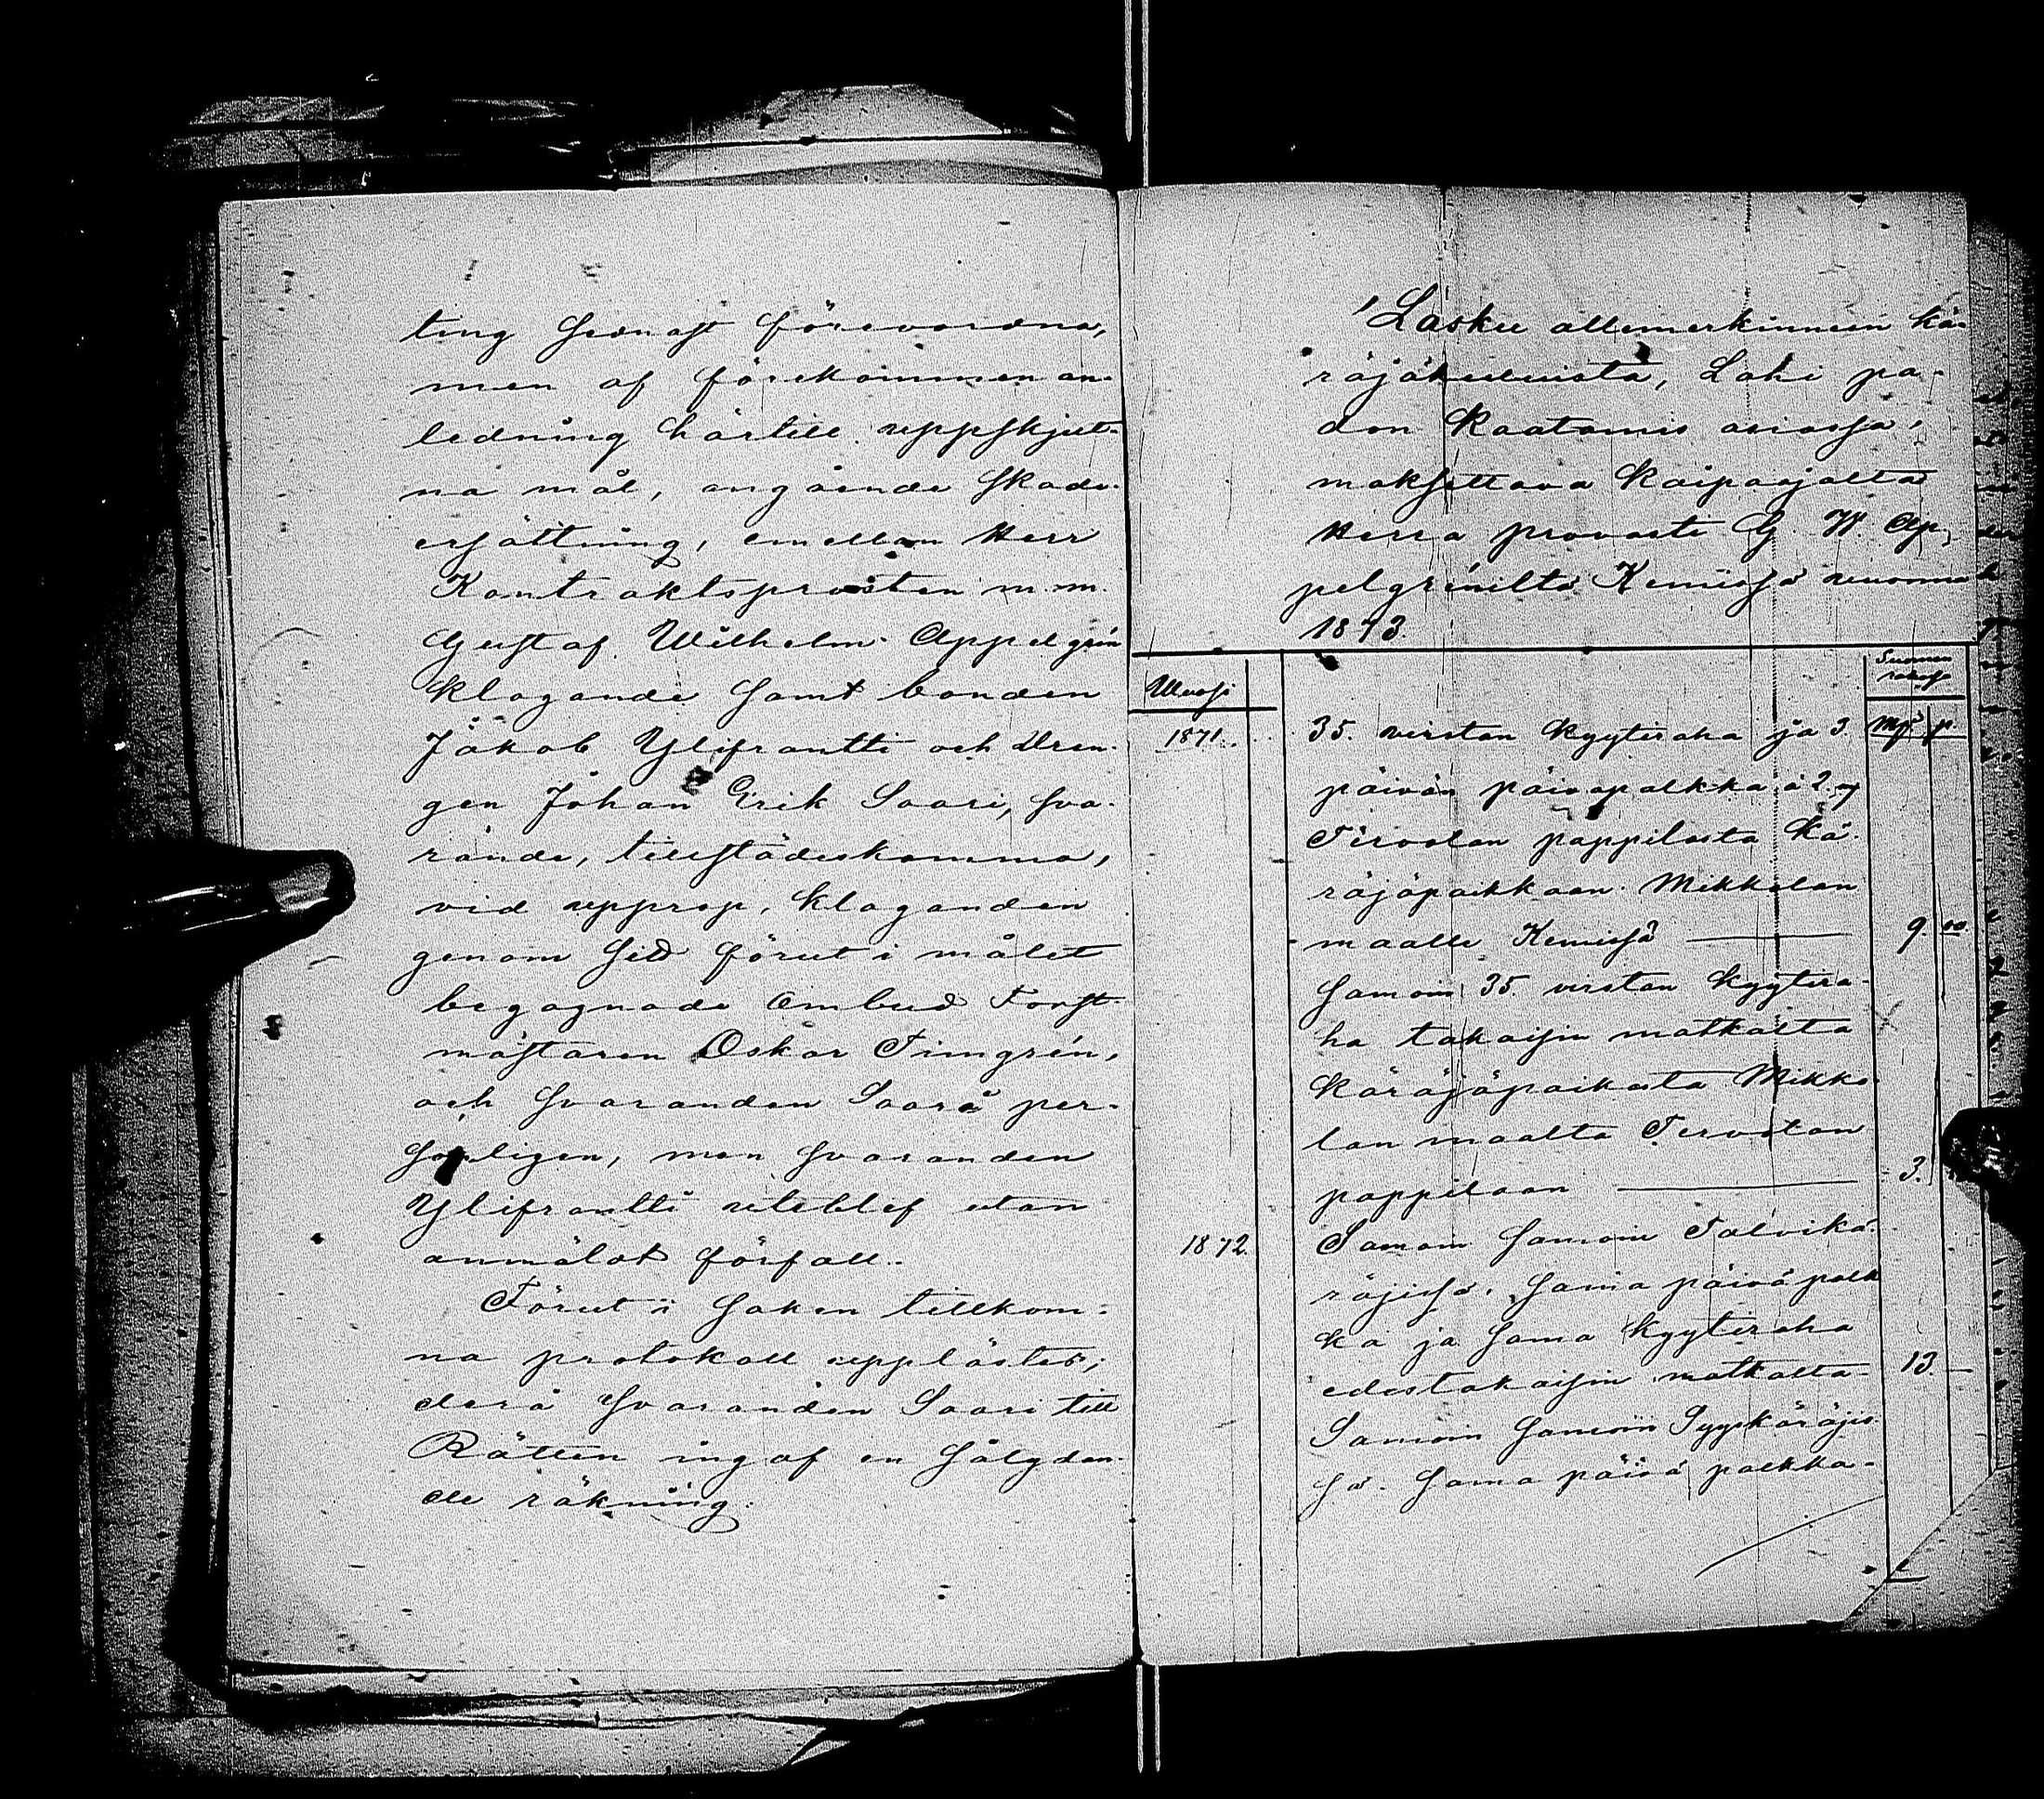 ting sednast förevordna,
men af förekommen an-
ledning härtill uppskjut-
na mål, angående skade-
ersättning, emellan Herr
Kontraktsprosten m. m.
Gustaf Wilhelm Appelgrén
klagande samt bonden
Jakob Ylifrantti och dren-
gen Johan Erik Saari, sva-
rande, tillstädeskommo,
vid upprop, klaganden
genom sid förut i målet
begagnade ombud Forst-
mästaren Oskar Timgrén,
och svaranden Saari per-
sonligen, men svaranden
Ylifrantti uteblef utan
anmäldt förfall.
Förut i saken tillkom-
na protokoll upplästes,
derå svaranden Saari till
Rätten ingaf en sålydan-
de räkning:
Lasku allemerkinnein kä-
räjäkuluista, Lohi pa-
don Kaatamis asiassa,
maksettava Kaipaajalta
Herra provasti G. W. Ap-
pelgréniltä Kemissä vuonna
1873.
Wuosi
Suomen
rahassa
Mk p.
1871. 35. virstan kyytiraha ja 3
päivän päivapalkka á 2 m
Tervolan pappilasta kä-
räjäpaikkaan Mikkolan
maalle Kemissä 9. 00.
Samoin 35. virstan kyytira-
ha takaisin matkalta
Käräjäpaikasta Mikko-
lan maalta Tervolan
pappilaan 3.
1872. Samoin samoin Talvikä-
räjissä. Sama päiväpalk
ka ja sama kyytiraha
edestakaisin matkalta 13. —
Samoin samoin Syyskäräjis-
sä. Sama päivä palkka-